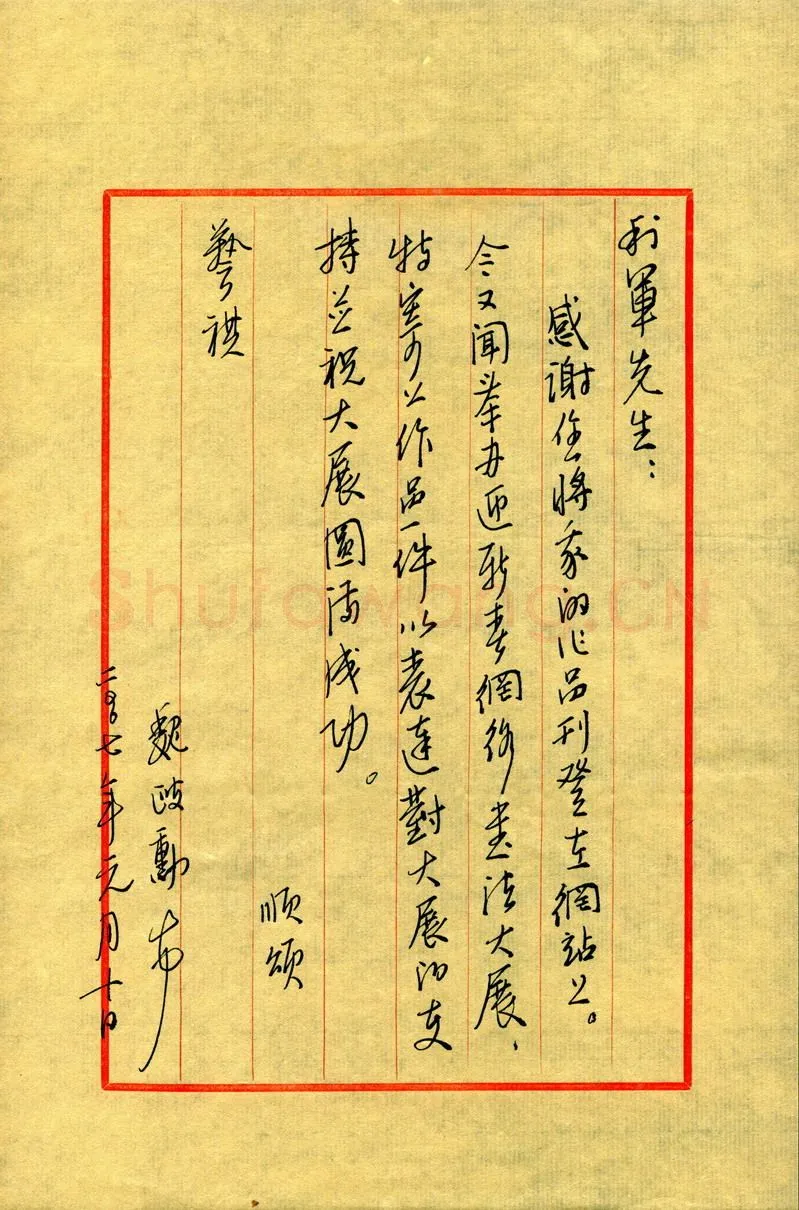 利軍先生：
感谢您将我的作品刊登在網站上。
今又闻举办迎新春網络書法大展，
特寄上作品一件以表達對大展的支
持并祝大展圆满成功。
順頌
藝祺
魏啟勳
二〇〇七年元月十日
Shufawang.CN